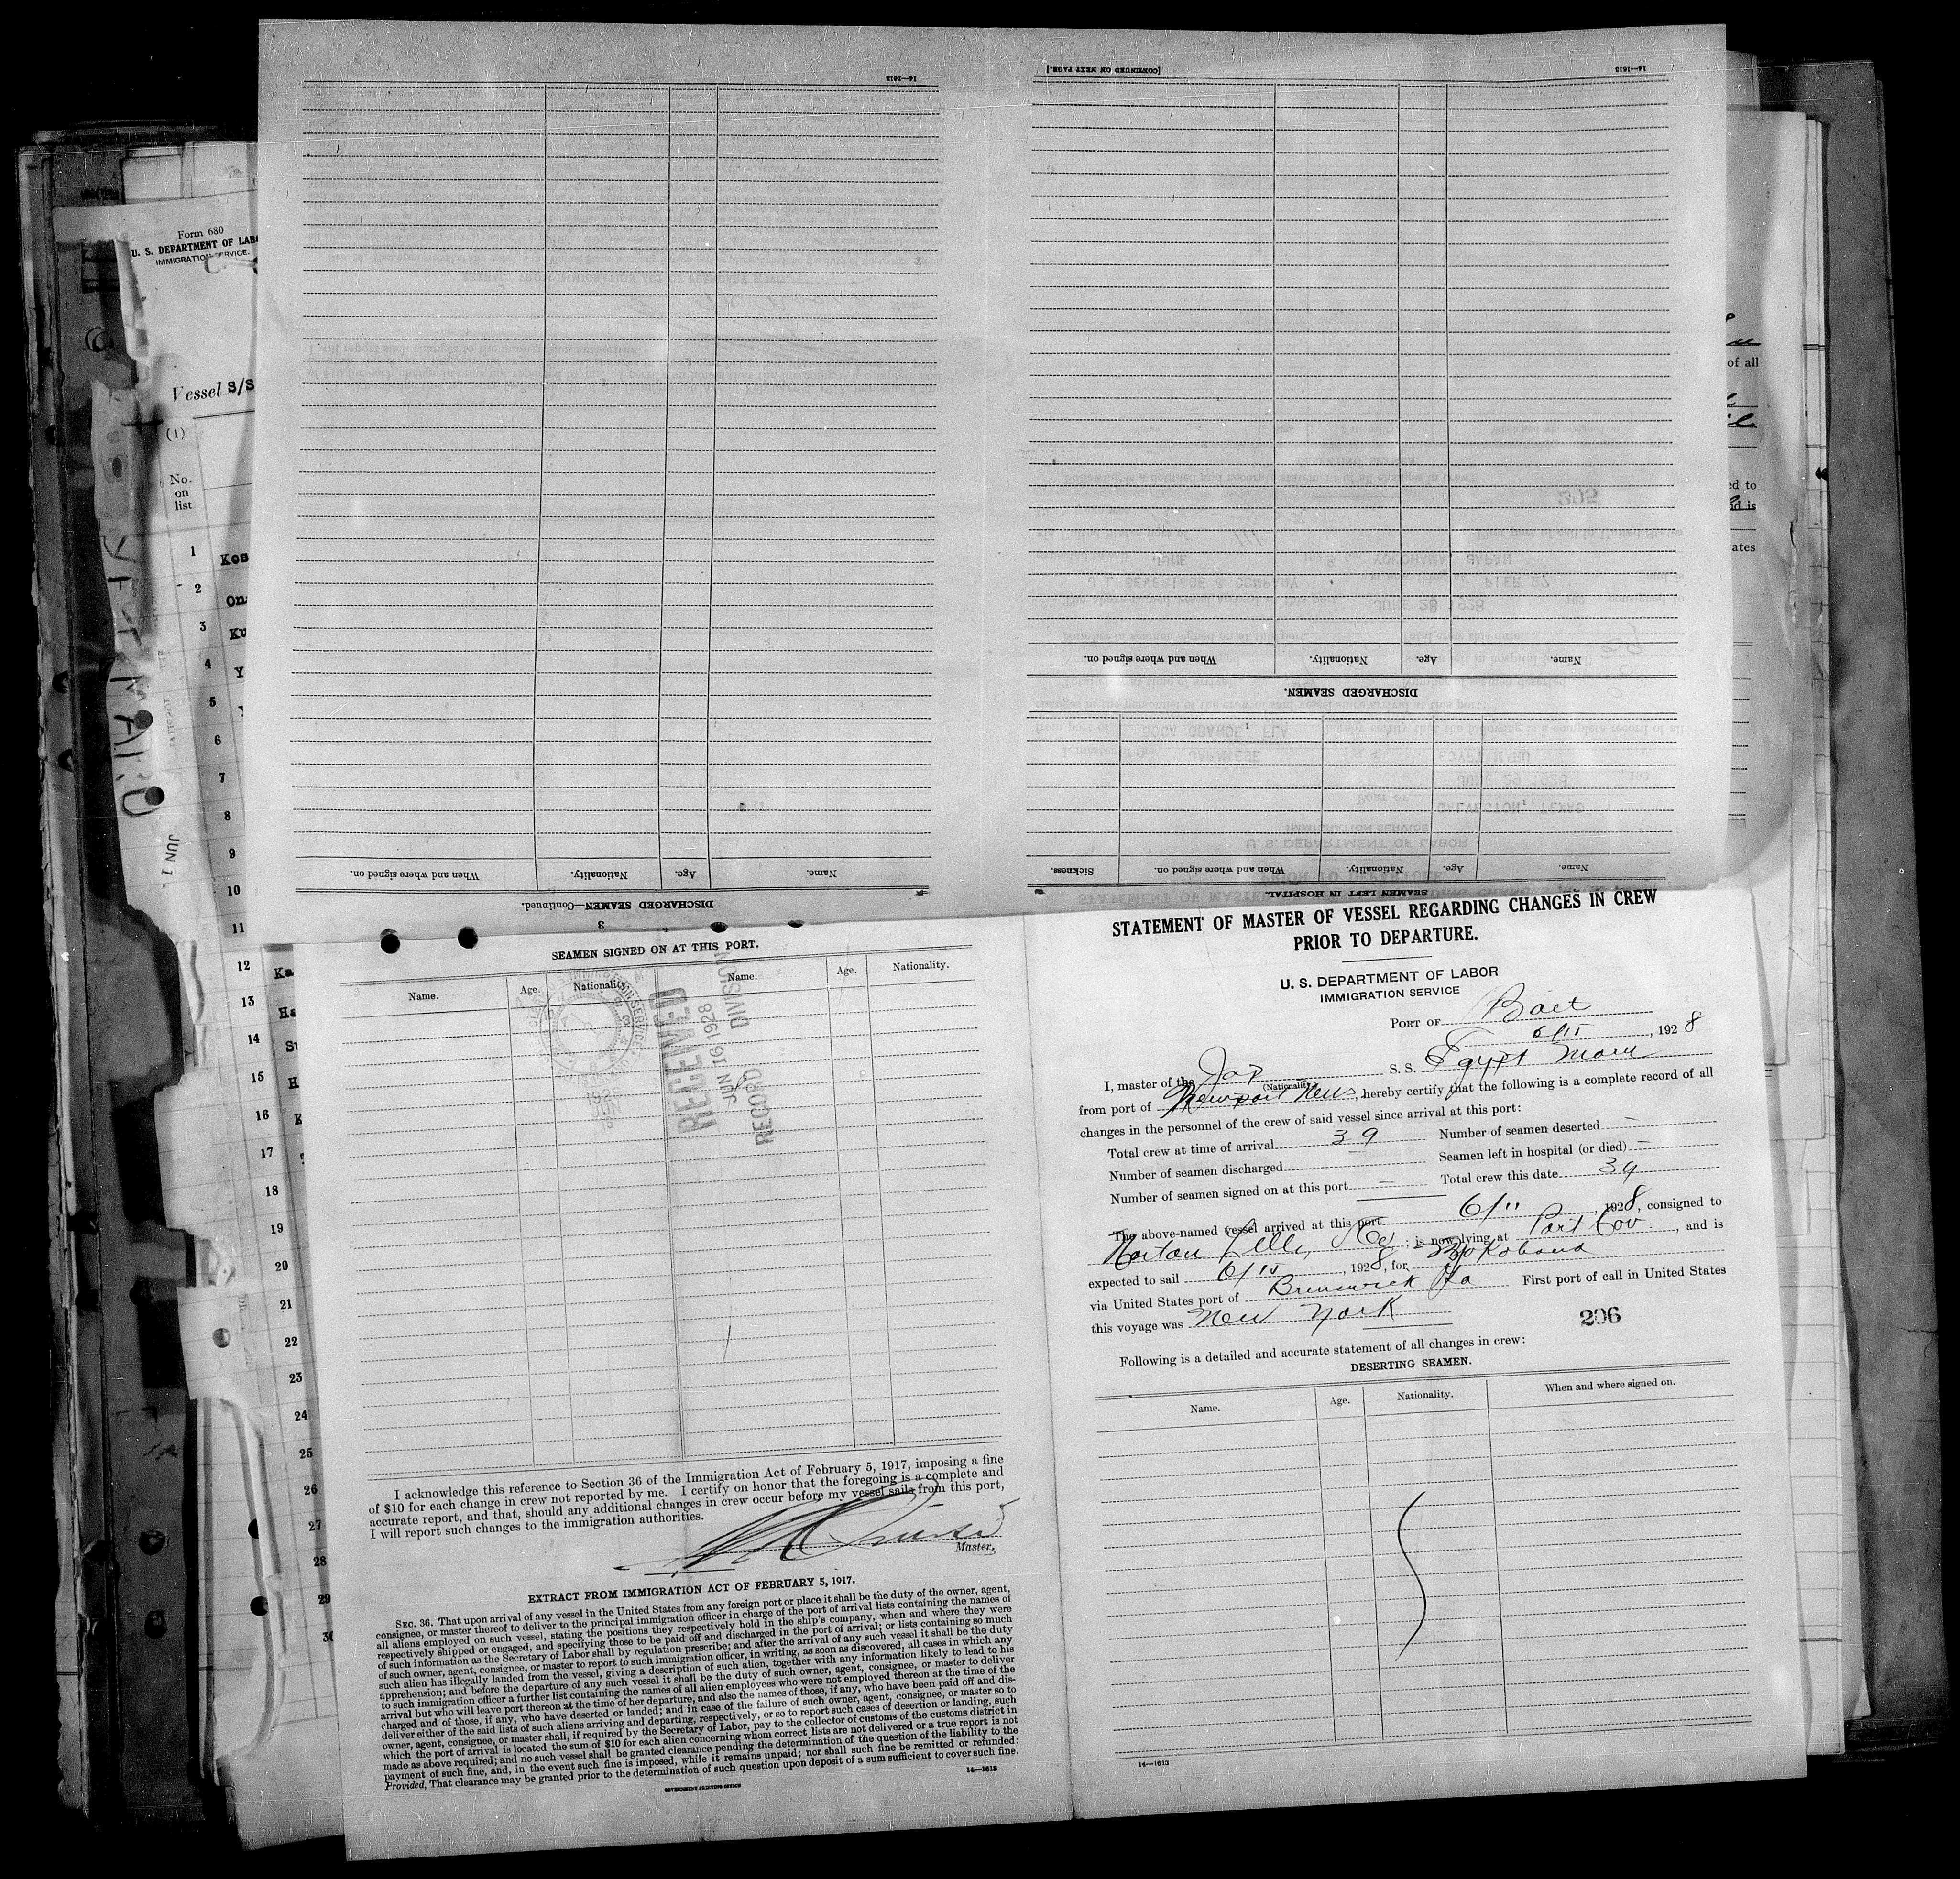 14—1613
[CONTINUED ON NEXT PAGE.]
14—1613
Name.
Age.
Nationality.
When and where signed on.
DISCHARGED SEAMEN.
Name.
Age.
Nationality.
When and where signed on.
Sickness.
SEAMEN LEFT IN HOSPITAL.
Name.
Age.
Nationality.
When and where signed on.
DISCHARGED SEAMEN—Continued.
3
Form 680
U. S. DEPARTMENT OF LABO
IMMIGRATION SERVICE.
Vessel S/S
(1)
No.
on
list
1 Kos
2 On
3 Ku
4 Y
5
6
7
8
9
10
11
12 Ka
13 Ha
14 Su
15 H
16 K
17
18
19
20
21
22
23
24
25
26
27
28
29
30
JUN 1
of all
ed to
nd is
ates
SEAMEN SIGNED ON AT THIS PORT.
Name. Age. Nationality. Name. Age. Nationality.
RECEIVED
JUN 16 1928
RECORD DIVISION
I acknowledge this reference to Section 36 of the Immigration Act of February 5, 1917, imposing a fine
of $10 for each change in crew not reported by me. I certify on honor that the foregoing is a complete and
accurate report, and that, should any additional changes in crew occur before my vessel sails from this port,
I will report such changes to the immigration authorities.
Master.
EXTRACT FROM IMMIGRATION ACT OF FEBRUARY 5, 1917.
SEC. 36. That upon arrival of any vessel in the United States from any foreign port or place it shall be the duty of the owner, agent,
consignee, or master thereof to deliver to the principal immigration officer in charge of the port of arrival lists containing the names of
all aliens employed on such vessel, stating the positions they respectively hold in the ship's company, when and where they were
respectively shipped or engaged, and specifying those to be paid off and discharged in the port of arrival; or lists containing so much
of such information as the Secretary of Labor shall by regulation prescribe; and after the arrival of any such vessel it shall be the duty
of such owner, agent, consignee, or master to report to such immigration officer, in writing, as soon as discovered, all cases in which any
such alien has illegally landed from the vessel, giving a description of such alien, together with any information likely to lead to his
apprehension; and before the departure of any such vessel it shall be the duty of such owner, agent, consignee, or master to deliver
to such immigration officer a further list containing the names of all alien employees who were not employed thereon at the time of the
arrival but who will leave port thereon at the time of her departure, and also the names of those, if any, who have been paid off and dis-
charged and of those, if any, who have deserted or landed; and in case of the failure of such owner, agent, consignee, or master so to
deliver either of the said lists of such aliens arriving and departing, respectively, or so to report such cases of desertion or landing, such
owner, agent, consignee, or master shall, if required by the Secretary of Labor, pay to the collector of customs of the customs district in
which the port of arrival is located the sum of $10 for each alien concerning whom correct lists are not delivered or a true report is not
made as above required; and no such vessel shall be granted clearance pending the determination of the question of the liability to the
payment of such fine, and, in the event such fine is imposed, while it remains unpaid; nor shall such fine be remitted or refunded:
Provided, That clearance may be granted prior to the determination of such question upon deposit of a sum sufficient to cover such fine.
GOVERNMENT PRINTING OFFICE
14—1613
STATEMENT OF MASTER OF VESSEL REGARDING CHANGES IN CREW
PRIOR TO DEPARTURE.
U. S. DEPARTMENT OF LABOR
IMMIGRATION SERVICE
PORT OF Balt
6/15, 1928
I, master of the Jap S. S. Egypt Maru
(Nationality)
from port of Newport News, hereby certify that the following is a complete record of all
changes in the personnel of the crew of said vessel since arrival at this port:
Total crew at time of arrival 39 Number of seamen deserted —
Number of seamen discharged Seamen left in hospital (or died) —
Number of seamen signed on at this port — Total crew this date 39
The above-named vessel arrived at this port 6/11, 1928, consigned to
Norton Lilly Co; is now lying at Port Cov, and is
expected to sail 6/15, 1928, for Yokohama
via United States port of Brunswick Ga First port of call in United States
this voyage was New York
206
Following is a detailed and accurate statement of all changes in crew:
DESERTING SEAMEN.
Name. Age. Nationality. When and where signed on.
14—1613